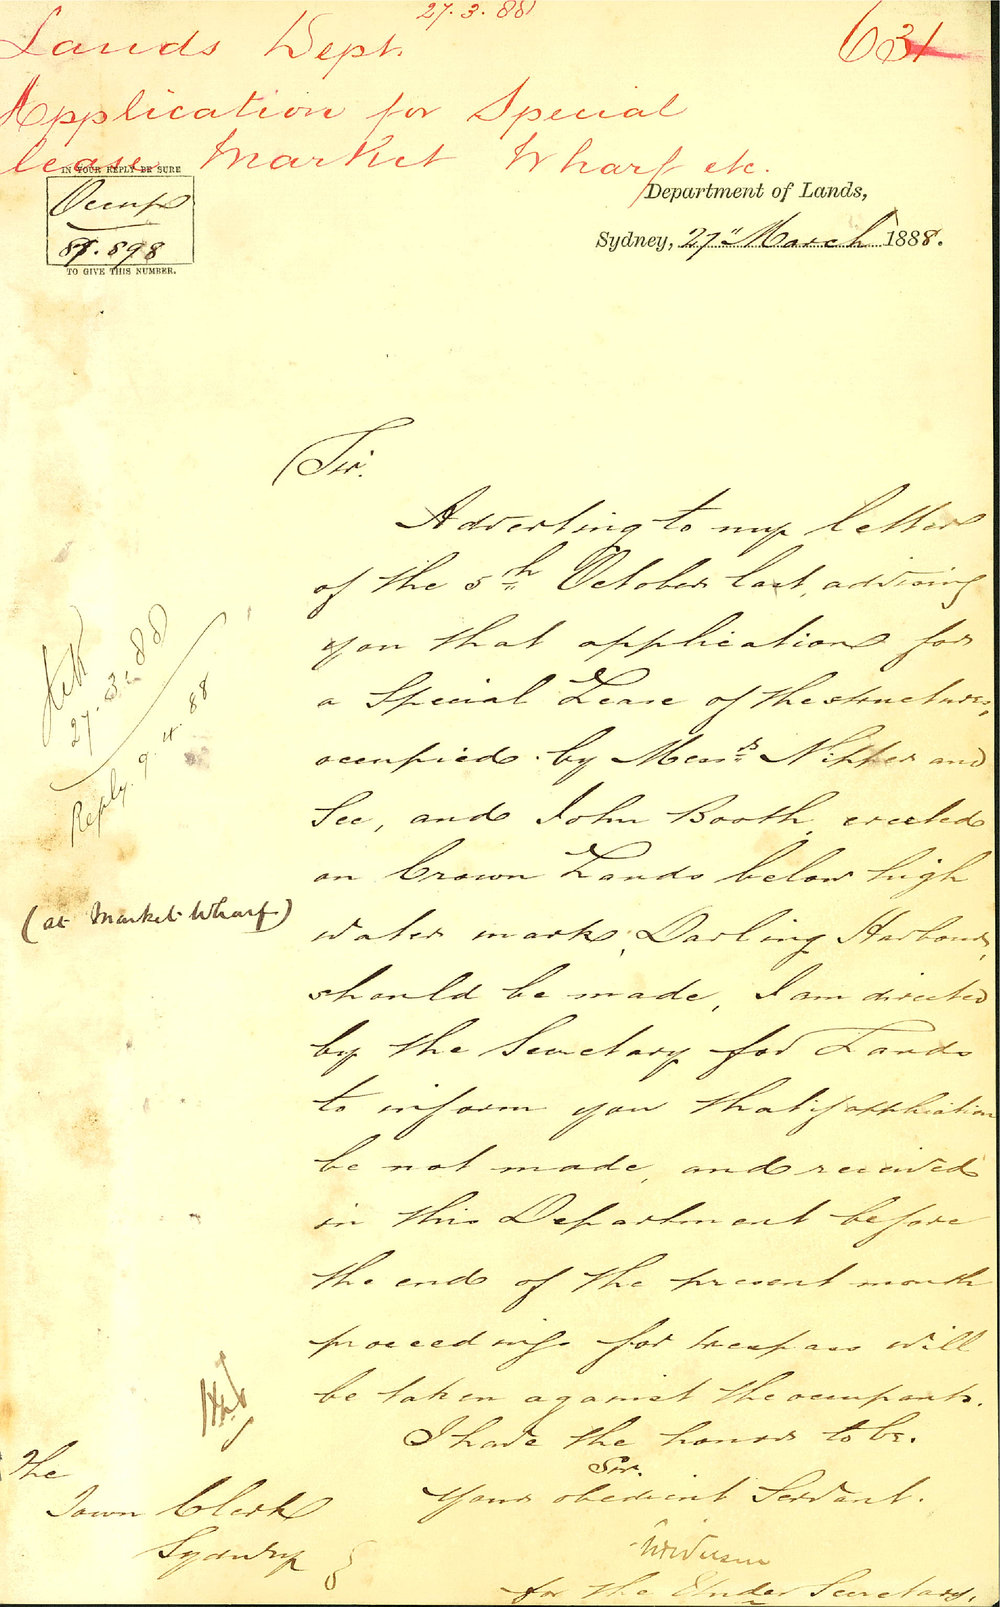 27.3.88
631
Lands Dept.
Application for Special
lease Market Wharf etc.
IN YOUR REPLY BE SURE
Occup
88.898
TO GIVE THIS NUMBER.
Department of Lands,
Sydney, 27" March 1888.
Sir.
Adverting to my letter
of the 5th October last, advising
you that application for
a Special Lease of the structures,
occupied by Messrs Nipper and
See, and John Booth, erected
on Crown Lands below high
(at Market Wharf)
water mark, Darling Harbour,
should be made, I am directed
by the Secretary for Lands
to inform you that if application
be not made, and received
in this Department before
the end of the present month
proceedings for trespass will
be taken against the occupants.
I have the honor to be.
Sir.
Your obedient Servant.
for the Under Secretary.
The
Town Clerk
Sydney
27.3.88
Reply. 9.4.88